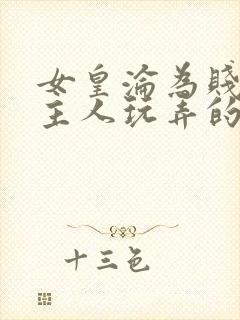 女皇淪為賤
主人玩弄的
十三色